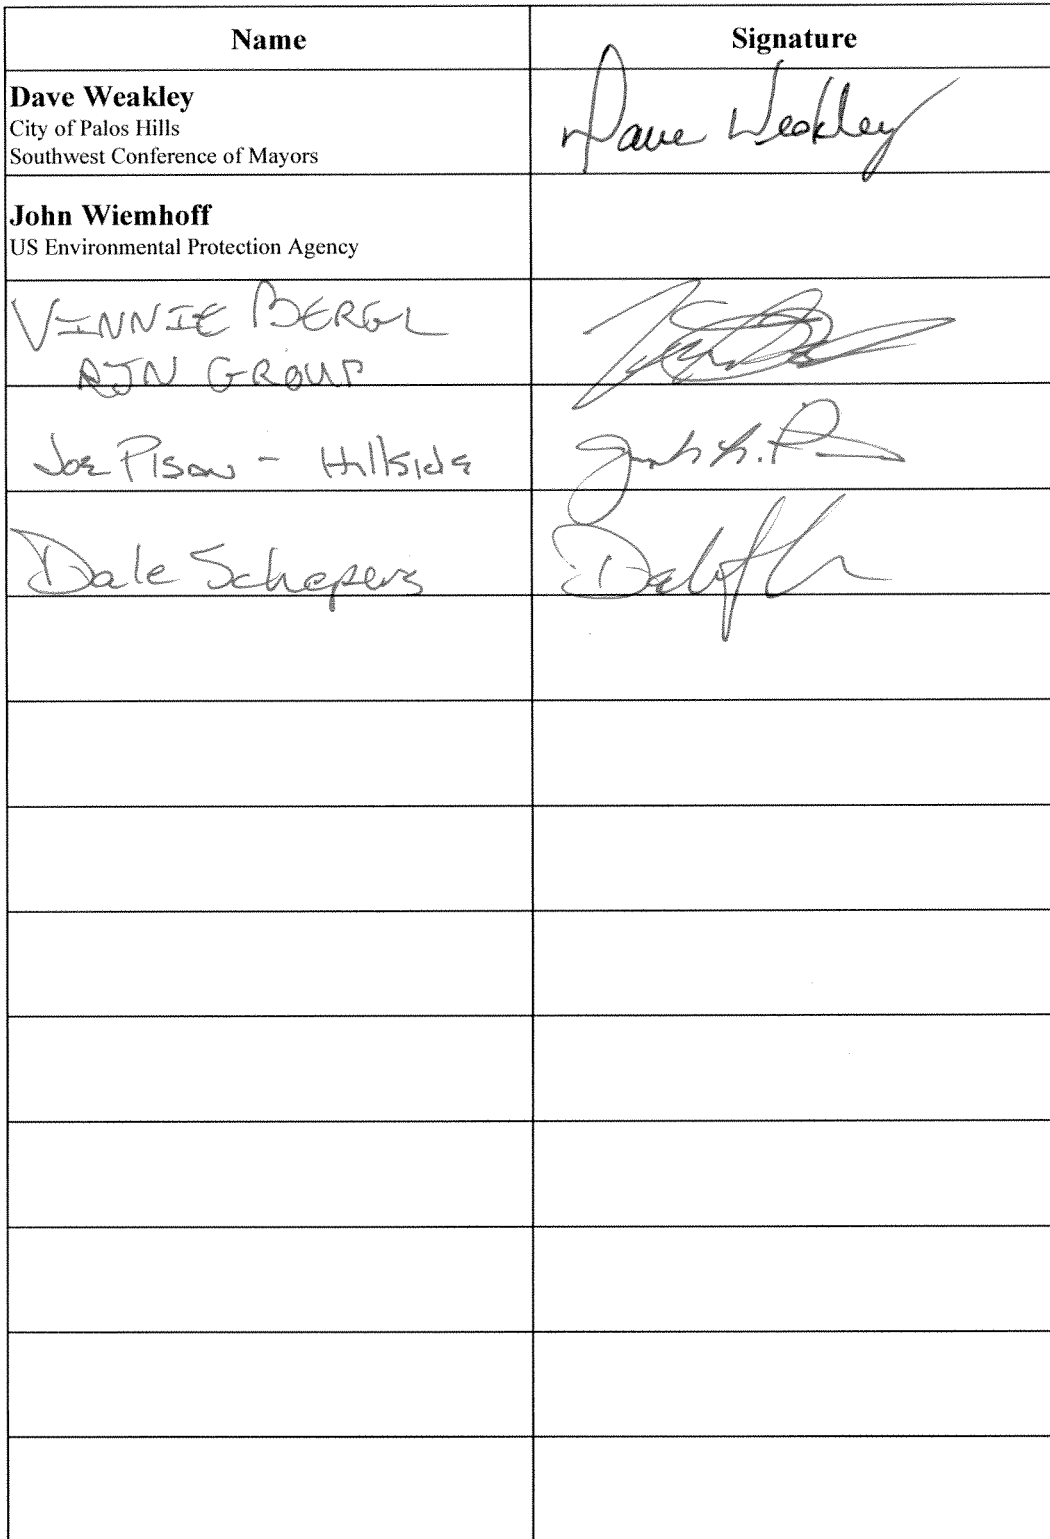 Name Signature
Dave Weakley
City of Palos Hills
Southwest Conference of Mayors
Dave Weakley
John Wiemhoff
US Environmental Protection Agency
VINNIE BERGL
RJN GROUP
Joe Pisano - Hillside
Dale Schepers